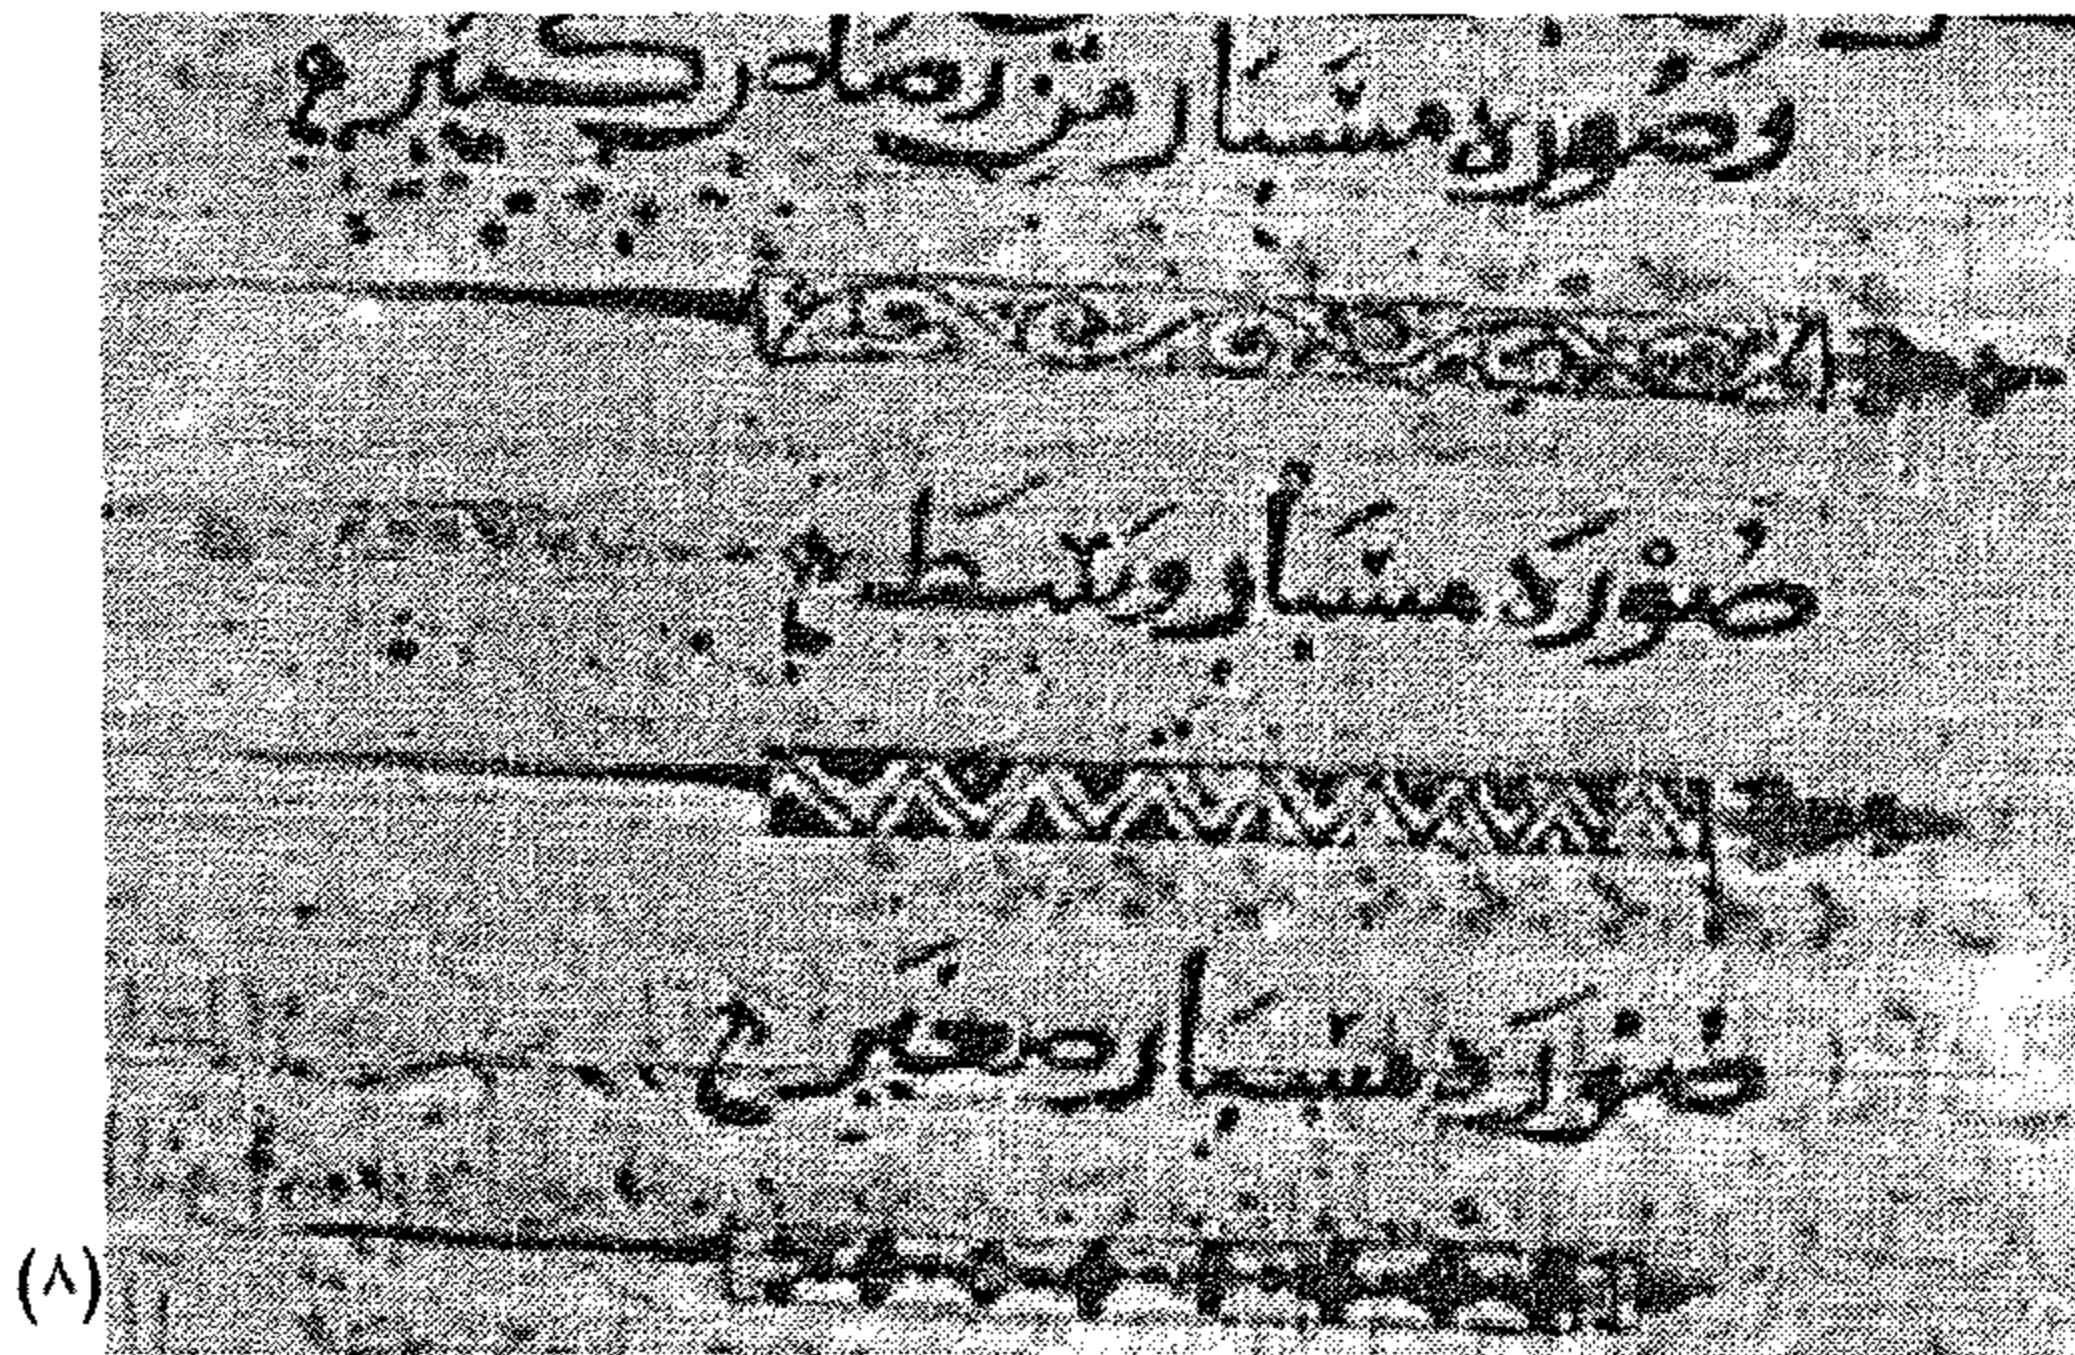 وصورة مسبار من كبير
صُوْرَة مسبَار وسَط
صُوْرَة مسبَار صغَير
(٨)